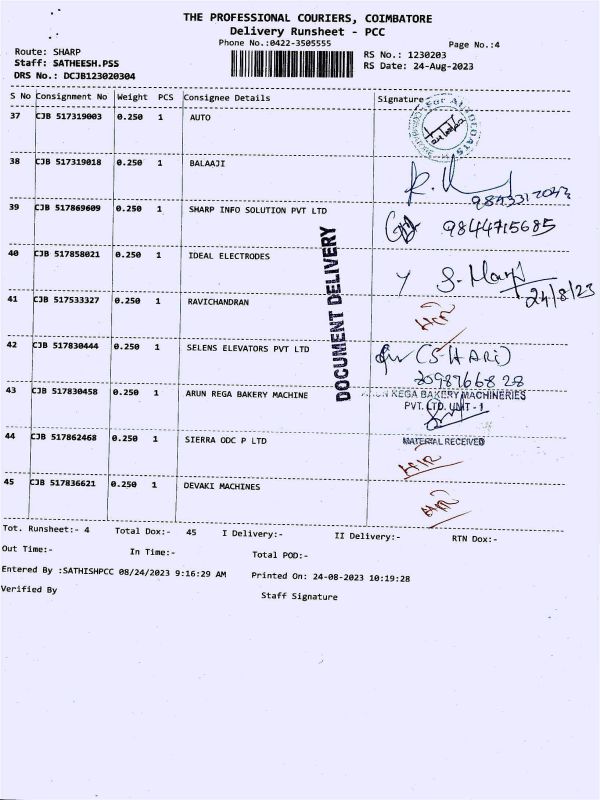 THE PROFESSIONAL COURIERS, COIMBATORE
Delivery Runsheet - PCC
Phone No.:0422-3505555
Page No.:4
Route: SHARP
RS No.: 1230203
Staff: SATHEESH.PSS
RS Date: 24-Aug-2023
DRS No.: DCJB123020304
S No Consignment No Weight PCS Consignee Details Signature
For AUTO
37 CJB 517319003 0.250 1 AUTO
38 CJB 517319018 0.250 1 BALAAJI
39 CJB 517869609 0.250 1 SHARP INFO SOLUTION PVT LTD 9844715685
40 CJB 517858021 0.250 1 IDEAL ELECTRODES S. Mary
24/8/23
41 CJB 517533327 0.250 1 RAVICHANDRAN
42 CJB 517830444 0.250 1 SELENS ELEVATORS PVT LTD (S HARi)
DOCUMENT DELIVERY
43 CJB 517830458 0.250 1 ARUN REGA BAKERY MACHINE
ARUN REGA BAKERY MACHINERIES
PVT. LTD. UNIT - 1
44 CJB 517862468 0.250 1 SIERRA ODC P LTD
MATERIAL RECEIVED
45 CJB 517836621 0.250 1 DEVAKI MACHINES
Tot. Runsheet:- 4 Total Dox:- 45 I Delivery:- II Delivery:- RTN Dox:-
Out Time:- In Time:- Total POD:-
Entered By :SATHISHPCC 08/24/2023 9:16:29 AM Printed On: 24-08-2023 10:19:28
Verified By Staff Signature